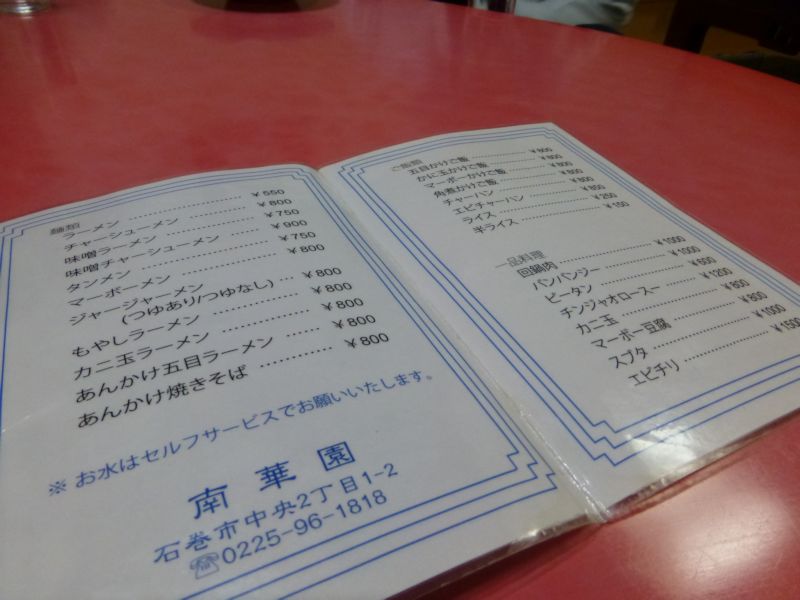 麺類
ラーメン ¥550
チャーシューメン ¥800
味噌ラーメン ¥750
味噌チャーシューメン ¥900
タンメン ¥750
マーボーメン ¥800
ジャージャーメン
(つゆあり/つゆなし) ¥800
もやしラーメン ¥800
カニ玉ラーメン ¥800
あんかけ五目ラーメン ¥800
あんかけ焼きそば ¥800
※ お水はセルフサービスでお願いいたします。
南華園
石巻市中央2丁目1-2
☎0225-96-1818
ご飯類
五目かけご飯 ¥800
かに玉かけご飯 ¥800
マーボーかけご飯 ¥800
角煮かけご飯 ¥800
チャーハン
エビチャーハン
ライス ¥250
半ライス ¥150
一品料理
回鍋肉 ¥1000
バンバンジー ¥1000
ピータン
チンジャオロースー ¥1200
カニ玉 ¥800
マーボー豆腐 ¥800
スブタ ¥1000
エビチリ ¥1500